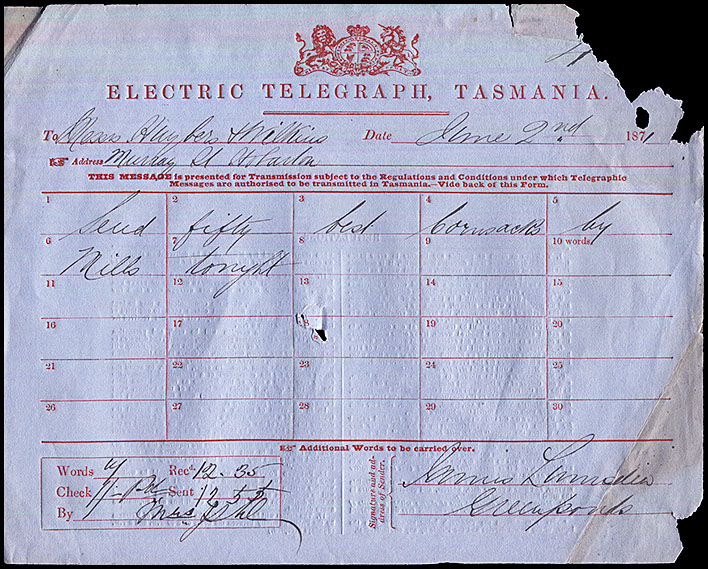 ELECTRIC TELEGRAPH, TASMANIA.
To Wilkins Date June 2nd 1871
Address Murray St Hobarton
THIS MESSAGE is presented for Transmission subject to the Regulations and Conditions under which Telegraphic
Messages are authorised to be transmitted in Tasmania.—Vide back of this Form.
1 2 3 4 5
Send fifty best Cornsacks by
6 7 8 9 10 words.
Mills tonight
11 12 13 14 15
16 17 18 19 20
21 22 23 24 25
26 27 28 29 30
Additional Words to be carried over.
Words 7 Recd. 12.35
Check 1/- Pd Sent 12 55
By
Signature and address of Sender.
James
Greenponds